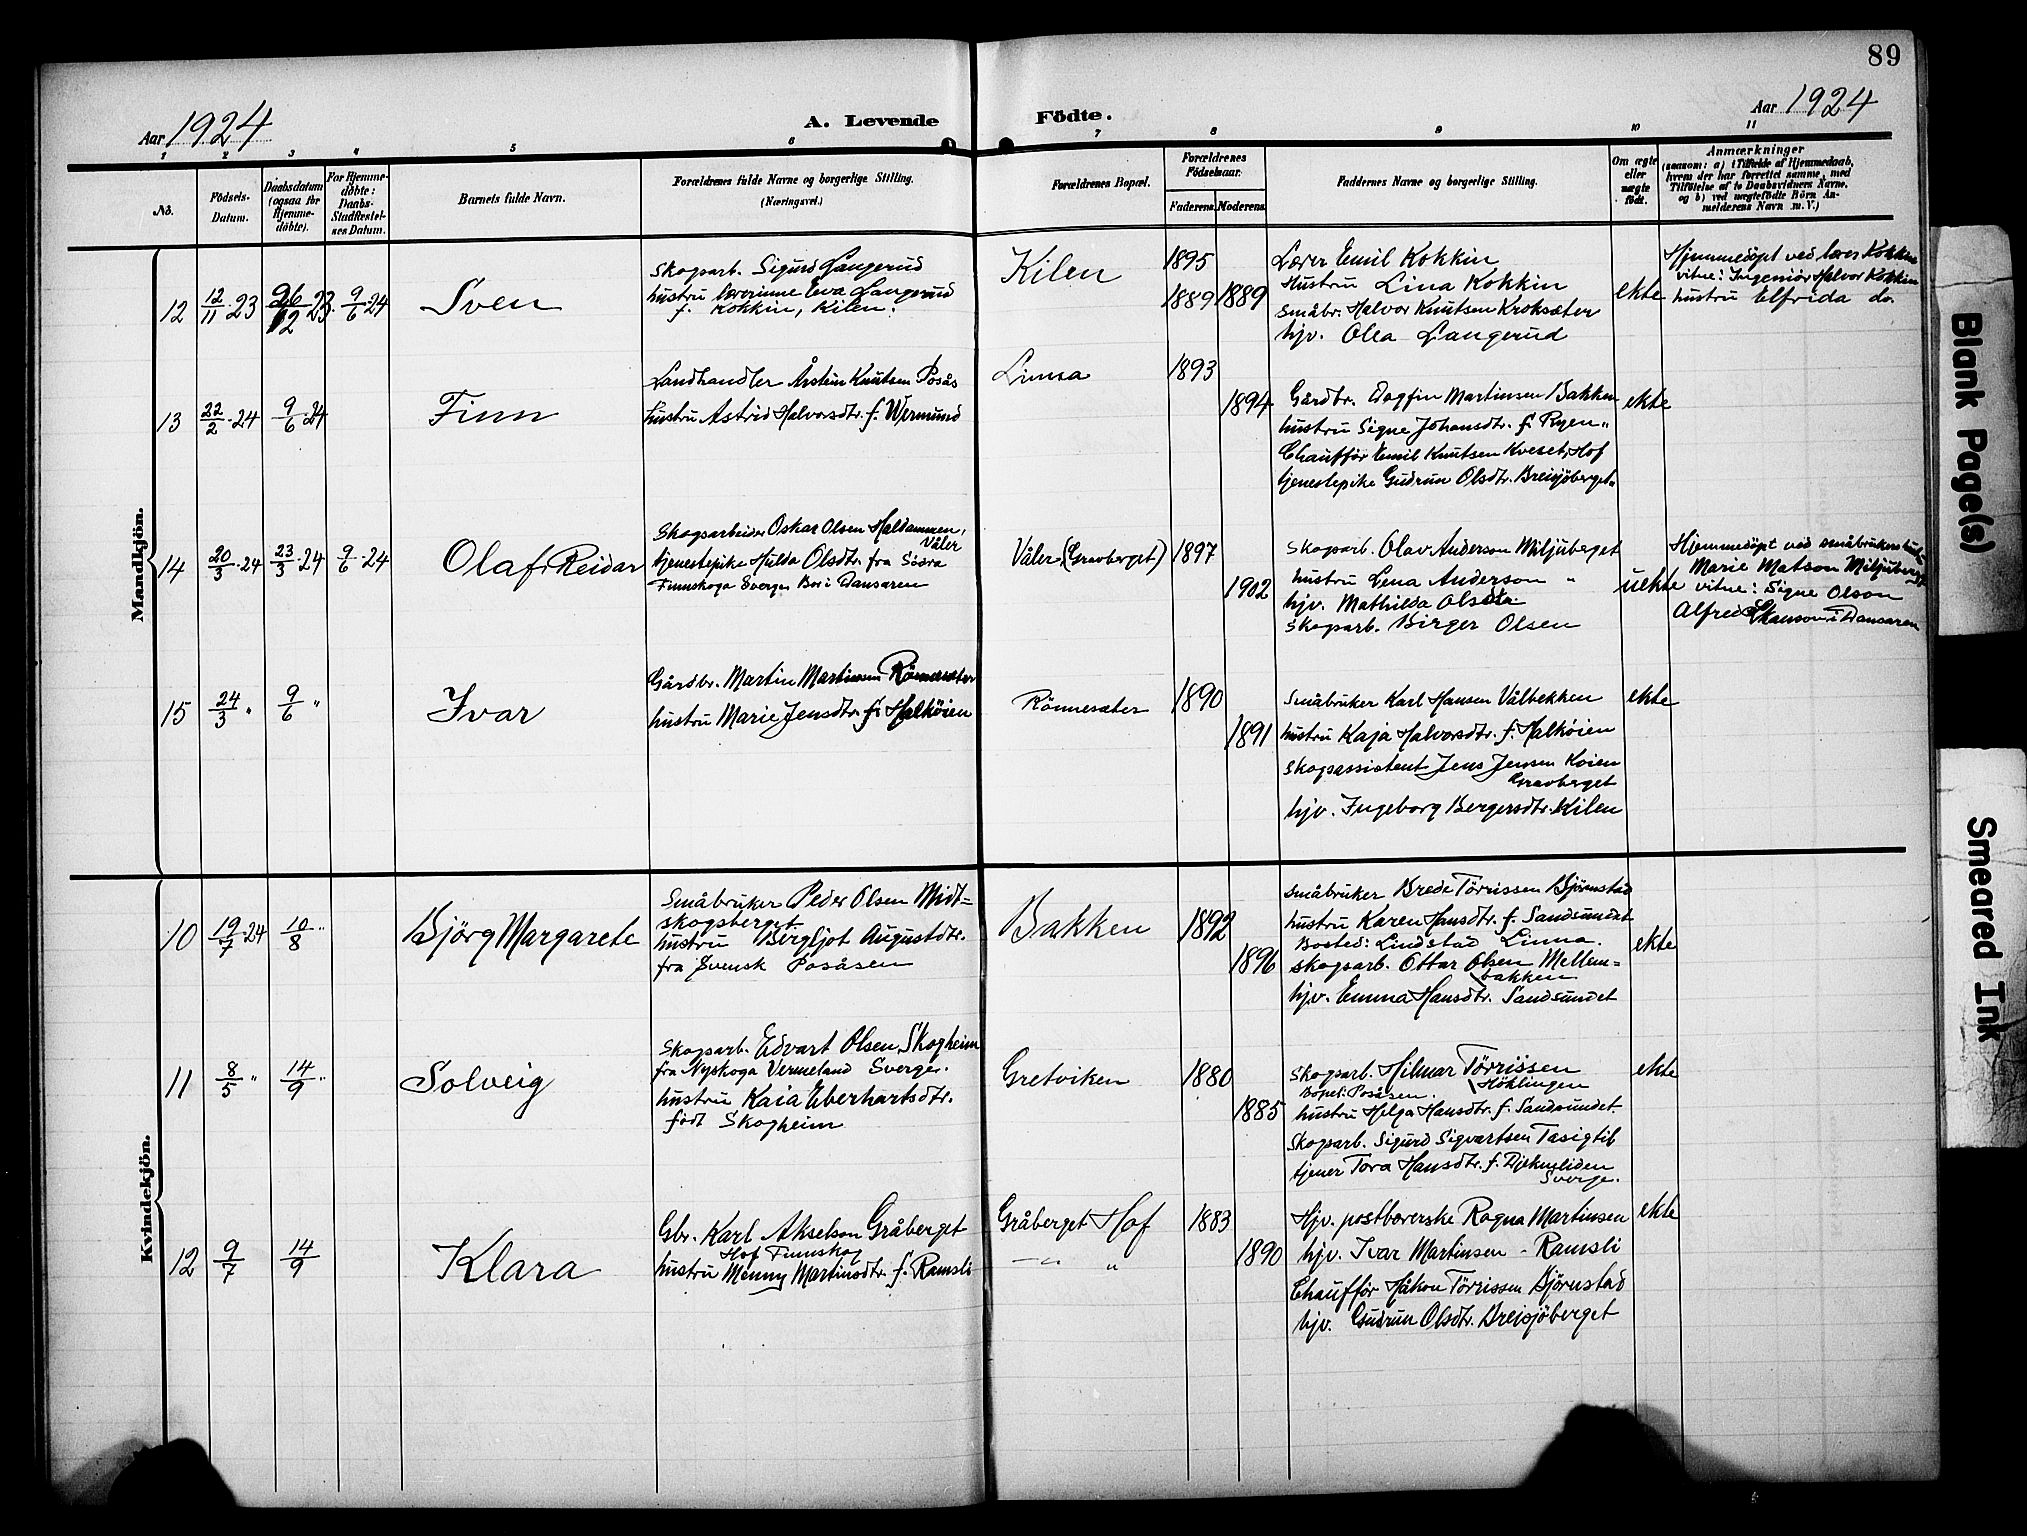 89
Aar 1924
A. Levende
Födte.
Aar 1924
1 2 3 4 5 6 7 8 9 10 11
No.
Födsels-
Datum.
Daabsdatum
(ogsaa for
Hjemme-
döbte).
For Hjemme-
döbte:
Daabs-
Stadfæstel-
ses Datum.
Barnets fulde Navn.
Forældrenes fulde Navne og borgerlige Stilling.
(Næringsvei.)
Forældrenes Bopæl.
Forældrenes
Födselsaar.
Faderens. Moderens.
Faddernes Navne og borgerlige Stilling.
Om ægte
eller
uægte
födt.
Anmærkninger
(saasom: a) i Tilfælde af Hjemmedaab,
hvem der har forrettet samme, med
Tilföielse af to Daabsvidners Navne,
og b) ved uægtefödte Börn An-
melderens Navn m. V.)
Mandkjön.
12
12/11 23
26/12 23
9/6 24
Sven
Skogsarb. Sigurd Langerud
hustru lærerinne Eva Langerud
f. Kokkin, Kilen.
Kilen
1895
1889 1889
Lærer Emil Kokkin
Hustru Lina Kokkin
Småbr. Halvor Knutsen Kroksæter
hjv. Olea Langerud
ekte
Hjemmedöpt ved lærer Kokkin
vitne: Ingeniör Halvor Kokkin
hustru Elfrida do.
13
22/2 24
9/6 24
Finn
Landhandler Årstein Knutsen Posås
hustru Astrid Halvorsdtr. f. Wermund
Linna
1893
1894
Gårdbr. Dagfin Martinsen Bakken
hustru Signe Johansdtr. f. Ryen "
Chaufför Emil Knutsen Kveset, Hof
tjenestepike Gudrun Olsdtr. Breisjöberget "
ekte
14
20/3 24
23/3 24
9/6 24
Olaf Reidar
Skogsarbeider Oskar Olsen Haldammen,
Våler
tjenestepike Hulda Olsdtr. fra Södra
Finnskoga Sverge. Bor i Dansaren
Våler, (Gravberget)
1897
1902
Skogsarb. Olav Anderson Miljuberget
hustru Lena Anderson "
hjv. Mathilda Olsdtr.
Skogsarb. Birger Olsen
uekte
Hjemmedöpt ved småbrukerhustru
Marie Matson Miljuberget
vitne: Signe Olson
Alfred Ekanson i Dansaren
15
24/3 "
9/6 "
Ivar
Gårdbr. Martin Martinsen Rönnesæter
hustru Marie Jensdtr. f. Halköien
Rönnesæter
1890
1891
Småbruker Karl Hansen Vålbekken
hustru Kaja Halvorsdtr. f. Halköien
Skogsassistent Jens Jensen Koien
Gravberget
hjv. Ingeborg Bergersdtr. Kilen
ekte
Kvindekjön.
10
19/7 24
10/8 "
Bjørg Margarete
Småbruker Peder Olsen Midt=
skogsberget
hustru Bergljot Augustdtr.
fra Svensk Posåsen
Bakken
1892
1896
Småbruker Brede Törrissen Bjørnstad
hustru Karen Hansdtr. f. Sandsundet
Bosted: Lindstad Linna.
skogsarb. Ottar Olsen Mellem=
bakken
hjv. Emma Hansdtr. Sandsundet
ekte
11
8/5 "
14/9 "
Solveig
Skogsarb. Edvart Olsen, Skogheim
fra Nyskoga Vermeland Sverge.
hustru Kaia Eberhartsdtr.
födt Skogheim
Gretviken
1880
1885
Skogsarb. Hilmar Törrissen
Höklingen
Bopel: Posåsen.
hustru Helga Hansdtr. f. Sandsundet
Skogsarb. Sigurd Sigvartsen Tasigtil
tjener Tora Hansdtr. f. Djekneliden
Sverge.
ekte
12
9/7
14/9
Klara
Gbr. Karl Akselson Gråberget
Hof Finnskog
hustru Menny Martinsdtr. f. Ramsli
Gråberget Hof
— " — "
1883
1890
Hjv. postbærerske Ragna Martinsen
hjv. Ivar Martinsen - Ramsli
Chaufför Håkon Törrissen Bjørnstad
hjv. Gudrun Olsdtr. Breisjöberget
ekte
Blank Page(s)
Smeared Ink